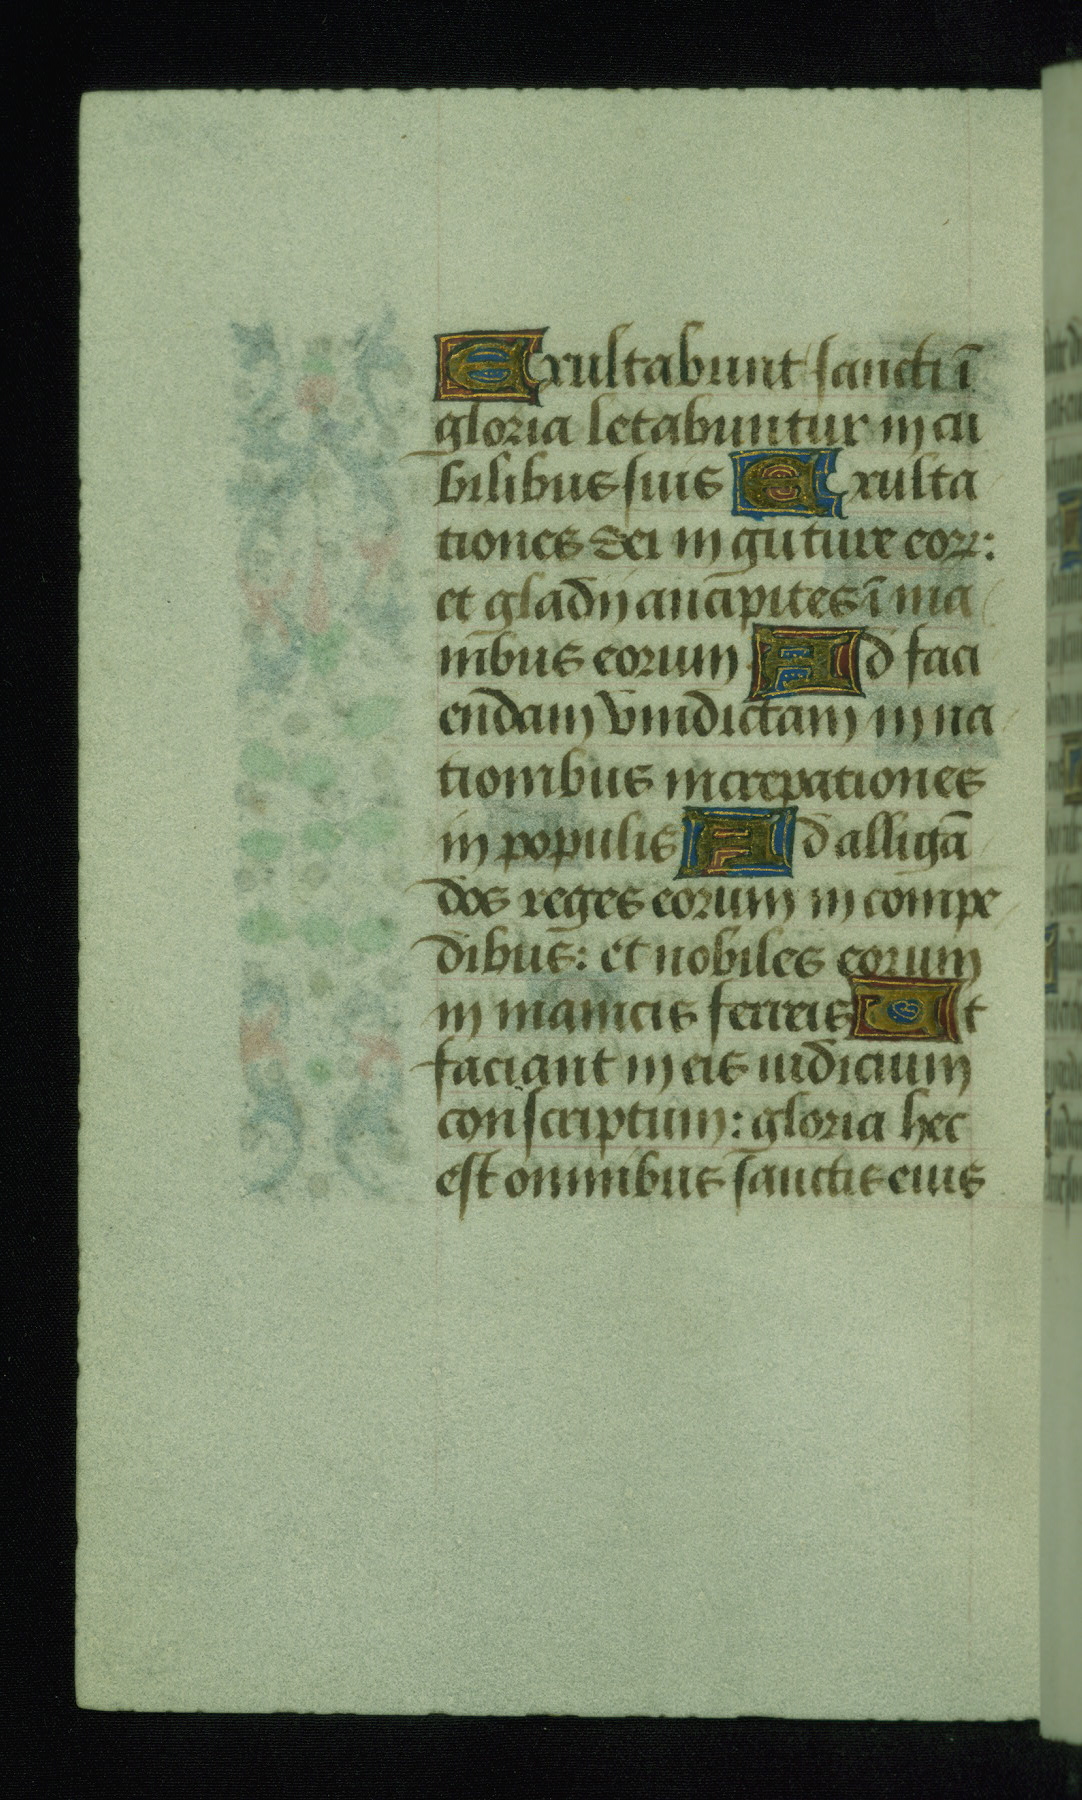 Exultabunt sancti ī
gloria letabuntur in cu
bilibus suis Exulta
tiones dei in guture eoꝝ:
et gladij ancipites ī ma
nibus eorum Ad faci
endam vindictam in na
tionibus increpationes
in populis Ad alligā
dos reges eorum in compe
dibus: et nobiles eorum
in manicis ferreis Ut
faciant in eis iudicium
conscriptum: gloria hec
est omnibus sanctis eius